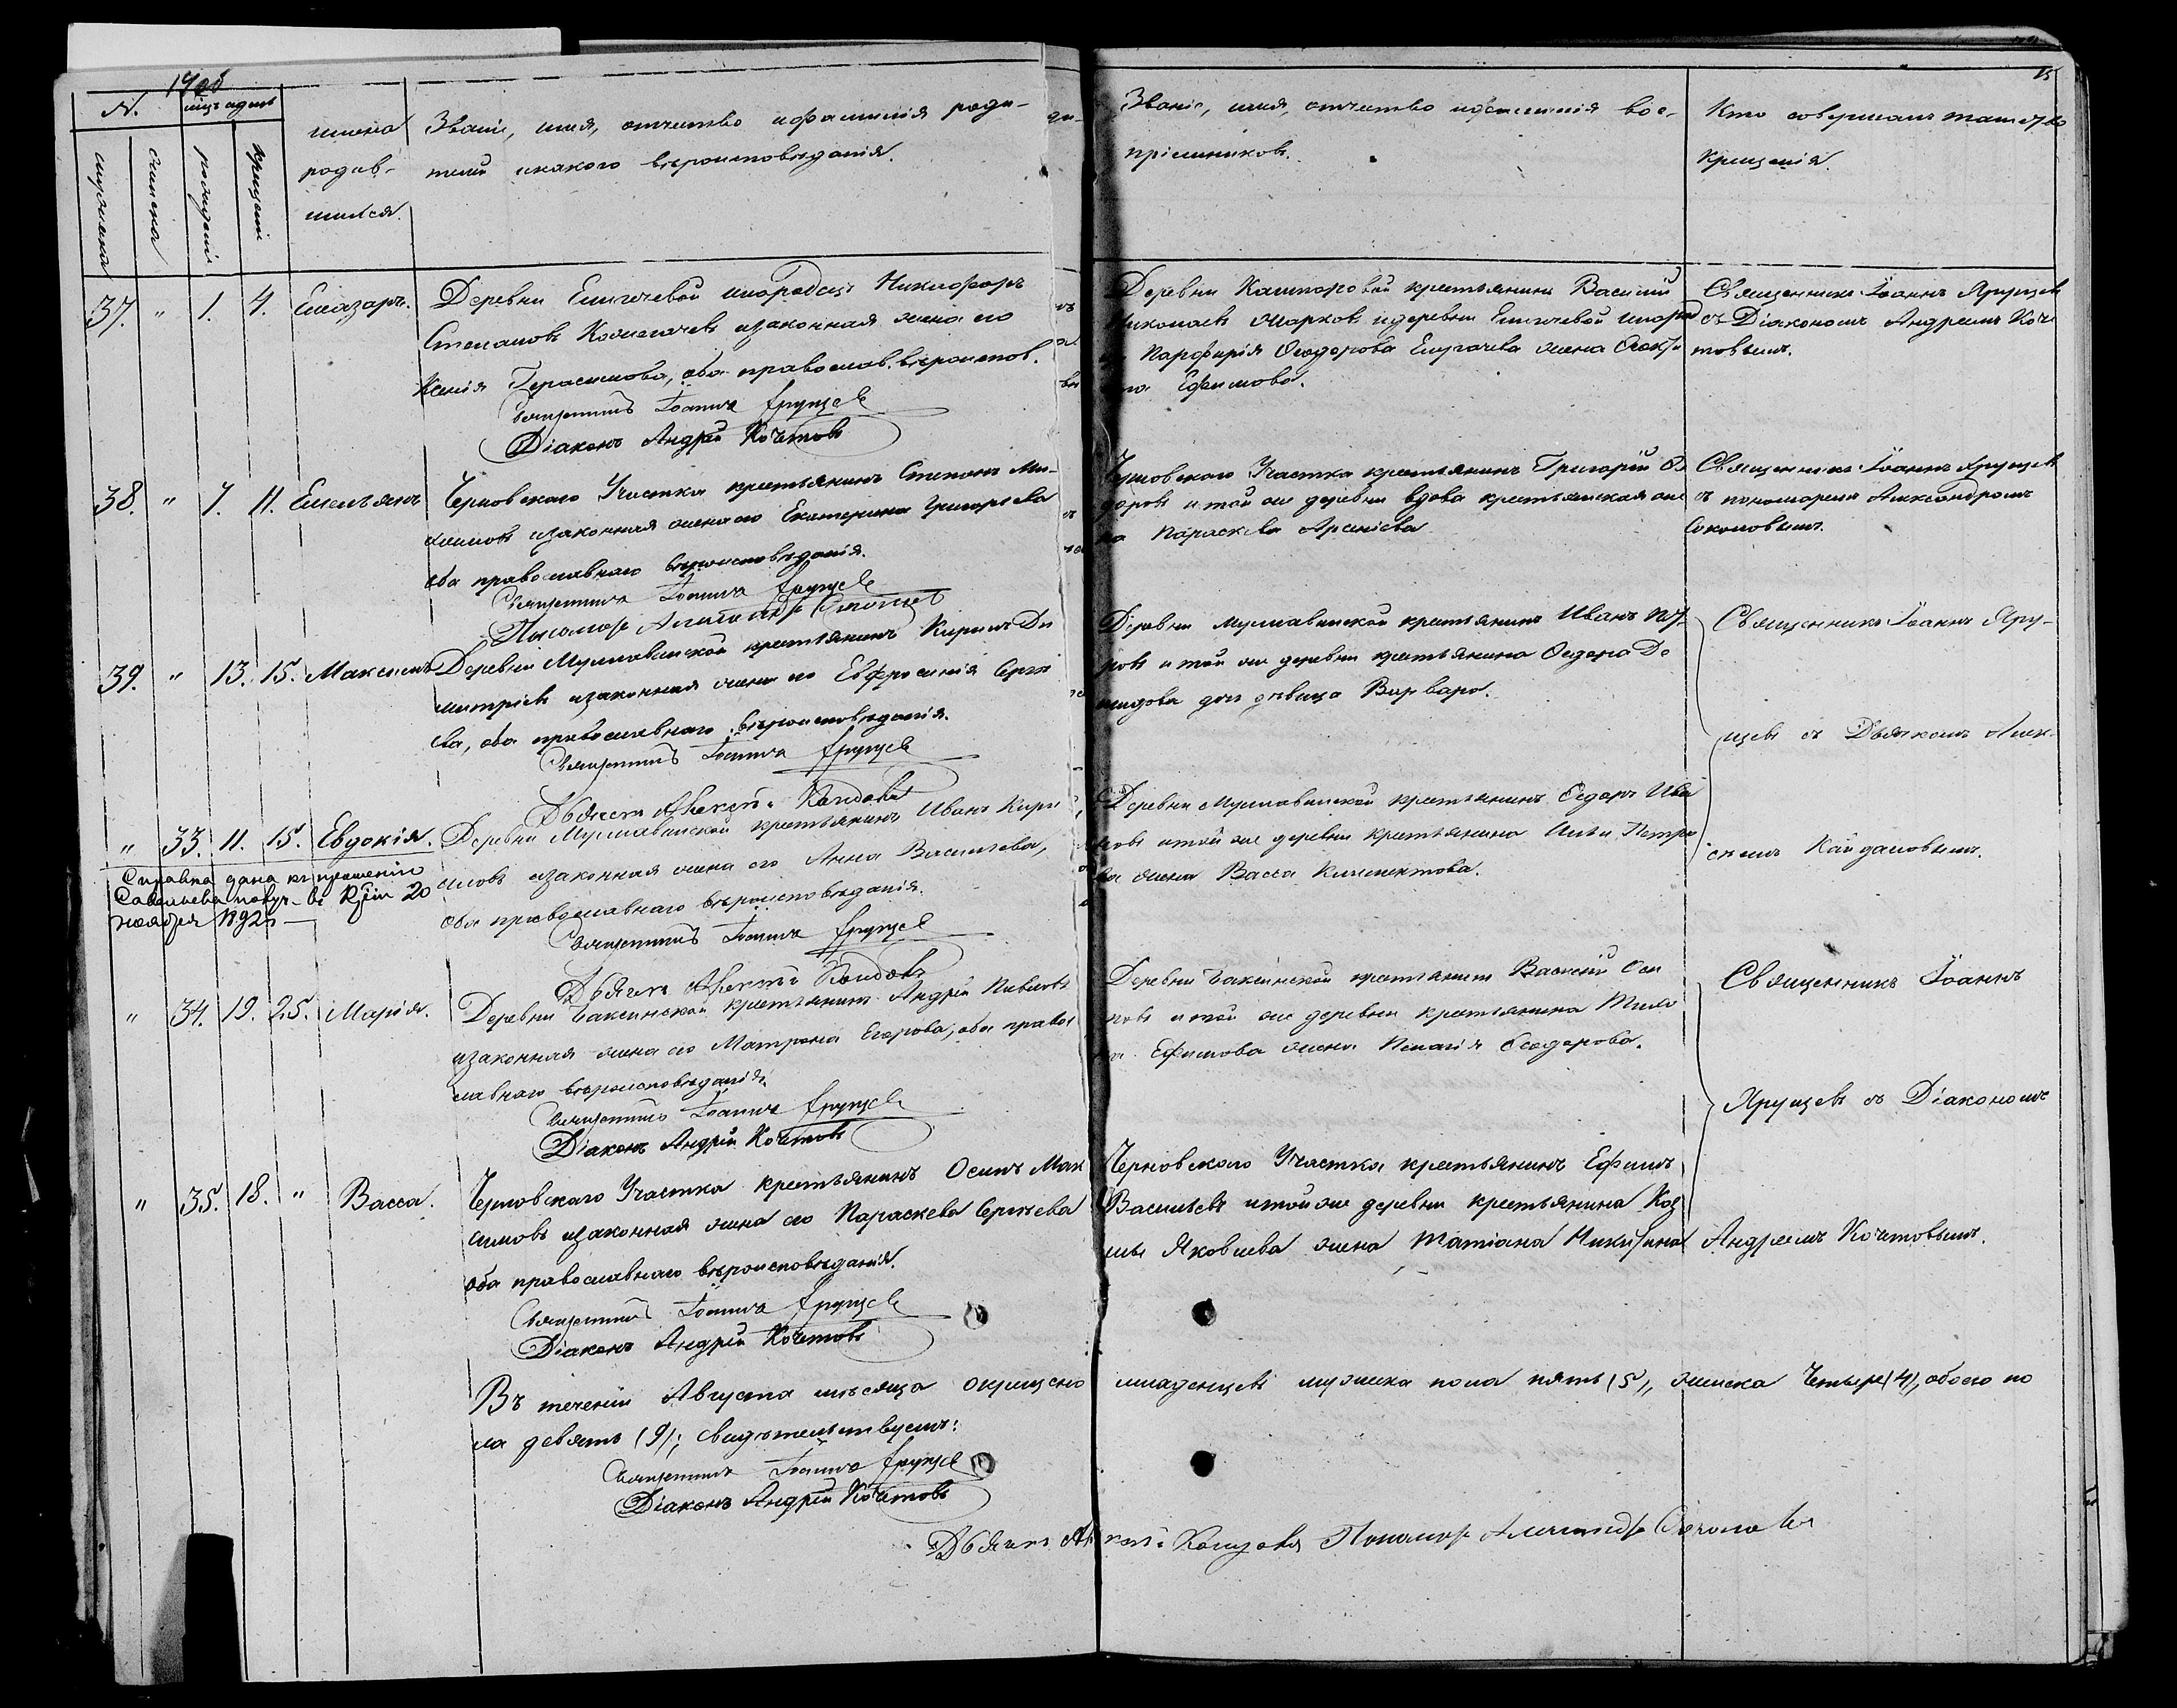 15
N.
мѣсяцъ и день
мужеска
женска
рожденія
крещенія
имена
родив-
шихся.
Званіе, имя, отчество и фамилія роди-
телей и какого вѣроисповѣданія.
Званіе, имя, отчество и фамилія вос-
пріемниковъ.
Кто совершалъ таинство
крещенія.
37. " 1. 4. Елеазаръ.
Деревни Епигачевой инородецъ Никифоръ
Степановъ и законная жена его
Ксенія Герасимова, оба православ. вѣроиспов.
Священникъ Іоаннъ Ярущевъ
Діаконъ Андрей Кочетовъ
Деревни крестьянинъ Василій
Николаевъ Марковъ и деревни Епигачевой инород
Парфирія Ѳеодорова Епигачева жена
Ефимова.
Священникъ Іоаннъ Ярущевъ
съ Діакономъ Андреемъ Коче
товымъ.
38. " 7. 11. Емельянъ
Черновскаго Участка крестьянинъ Степанъ Ма-
ксимовъ и законная жена его Екатерина Григорьева
оба православнаго вѣроисповѣданія.
Священникъ Іоаннъ Ярущевъ
Пономарь Александръ Соколовъ
Черновскаго Участка крестьянинъ Григорій Ѳе
доровъ и той же деревни вдова крестьянская же
на Параскева Арсеніева
Священникъ Іоаннъ Ярущевъ
съ пономаремъ Александромъ
Соколовымъ.
39. " 13. 15. Максимъ
Деревни Мурлавинской крестьянинъ Кирилъ Ди
митріевъ и законная жена его Евфросинія Серге
ева, оба православнаго вѣроисповѣданія.
Священникъ Іоаннъ Ярущевъ
Дьячекъ Алексѣй Кайдаловъ
Деревни Мурлавинской крестьянинъ Иванъ Пет
ровъ и той же деревни крестьянина Ѳедора Де
мидова дочь дѣвица Варвара.
Священникъ Іоаннъ Яру-
щевъ съ Дьячкомъ Алек-
сѣемъ Кайдаловымъ.
" 33. 11. 15. Евдокія.
Справка дана къ прошенію
Савельева ноября 1892
Деревни Мурлавинской крестьянинъ Иванъ Кири
ловъ и законная жена его Анна Васильева,
оба православнаго вѣроисповѣданія.
Священникъ Іоаннъ Ярущевъ
Дьячекъ Алексѣй Кайдаловъ
Деревни Мурлавинской крестьянинъ Ѳедоръ Ива
новъ и той же деревни крестьянина Ильи Петро
ва жена Васса Климентова.
" 34. 19. 25. Марія.
Деревни Баксинской крестьянинъ Андрей Павловъ
и законная жена его Матрона Егорова, оба право
славнаго вѣроисповѣданія.
Священникъ Іоаннъ Ярущевъ
Діаконъ Андрей Кочетовъ
Деревни Баксинской крестьянинъ Василій Оси
повъ и той же деревни крестьянина
Ефимова жена Пелагія Ѳеодорова.
Священникъ Іоаннъ
Ярущевъ съ Діакономъ
Андреемъ Кочетовымъ.
" 35. 18. " Васса.
Черновскаго Участка крестьянинъ Осипъ Мак
симовъ и законная жена его Параскева Сергѣева
оба православнаго вѣроисповѣданія.
Священникъ Іоаннъ Ярущевъ
Діаконъ Андрей Кочетовъ
Черновскаго Участка крестьянинъ Ефимъ
Васильевъ и той же деревни крестьянина Коз
мы Яковлева жена Татіана Никитина
Въ теченіи Августа мѣсяца окрещено младенцевъ мужеска пола пять (5), женска четыре (4), обоего по
ла девять (9); свидѣтельствуемъ:
Священникъ Іоаннъ Ярущевъ
Діаконъ Андрей Кочетовъ
Дьячекъ Алексѣй Кайдаловъ Пономарь Александръ Соколовъ